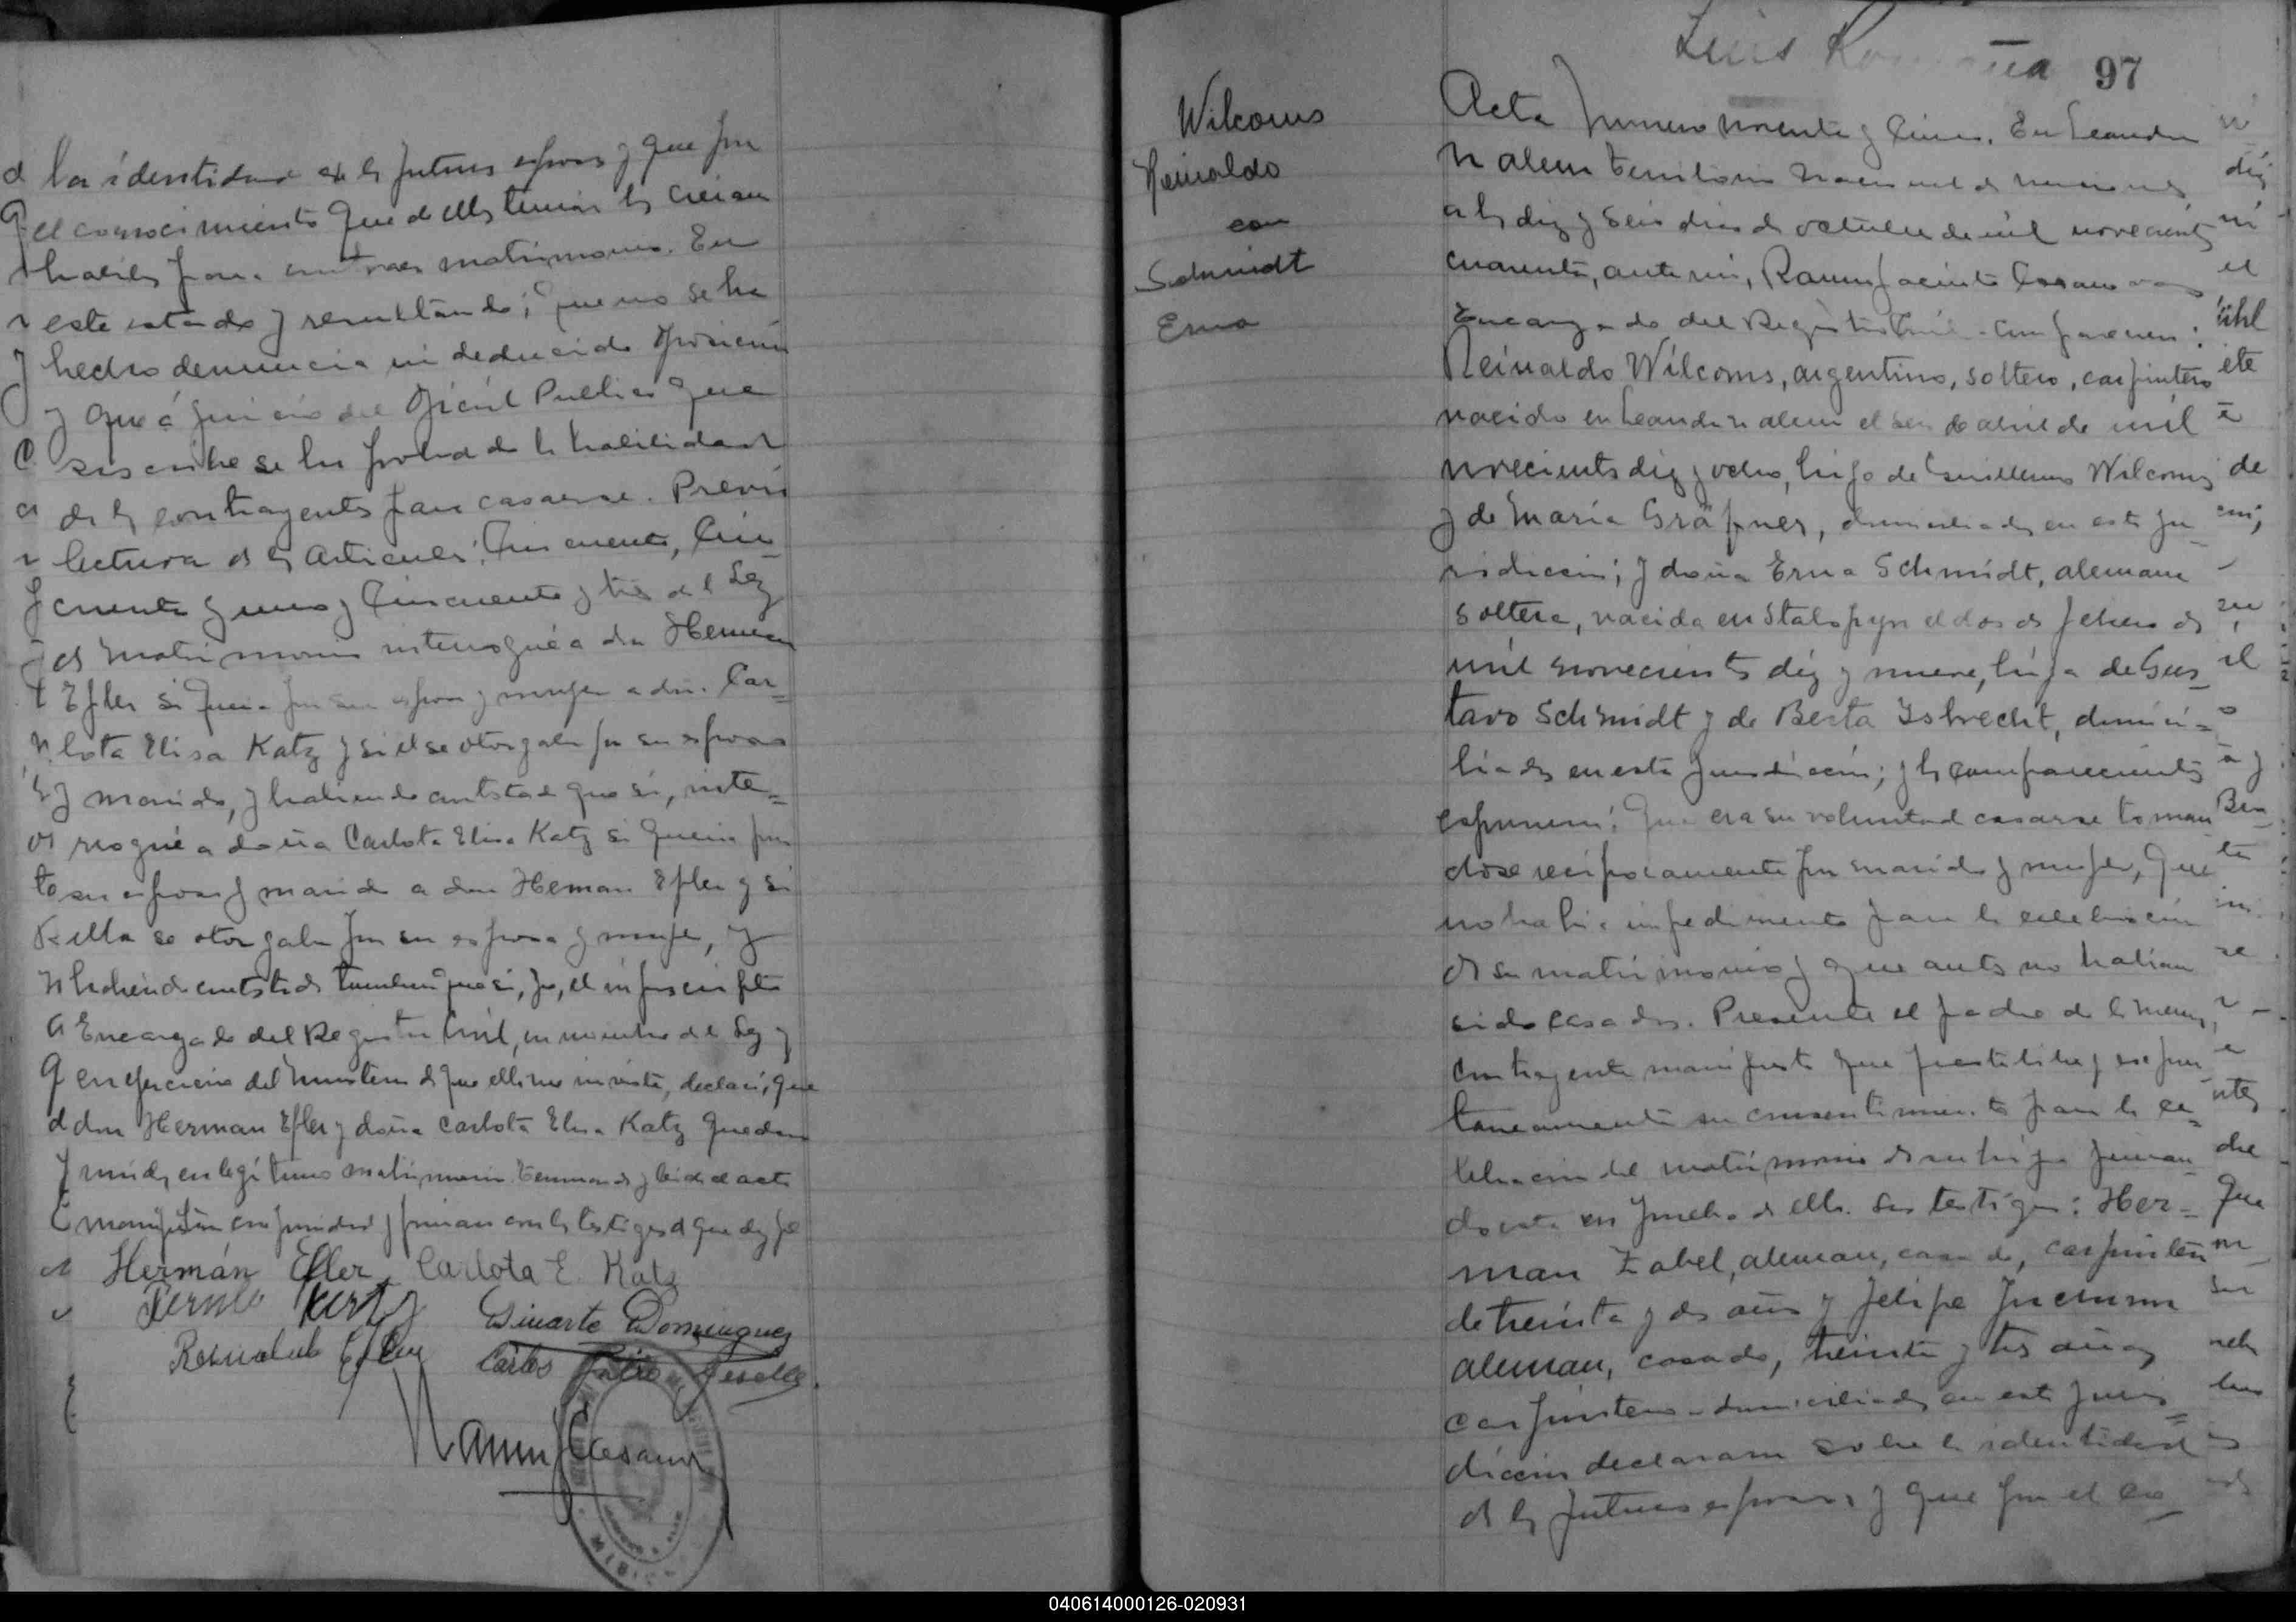 la identidad de los futuros esposos y que por
el conocimiento que de ellos tenian los creian
habiles para contraer matrimonio. En
este estado y resultando; que no se ha
hecho denuncia ni deducido oposición
y que á juicio del Oficial Publico que
suscribe se ha probado la habilidad
de los contrayentes para casarse. Previa
lectura de los articulos: Cincuenta, Cin
cuenta y uno y Cincuenta y tres de la Ley
de Matrimonio interrogué a don Herman
Efler si queria por su esposa y mujer a dña. Car=
lota Elisa Katz y si el se otorgaba por su esposo
y marido, y habiendo contestado que si, inte=
rrogué a doña Carlota Elisa Katz si queria por
su esposo y marido a don Herman Efler y si
ella se otorgaba por su esposa y mujer, y
habiendo contestado tambien que si, yo, el infrascripto
Encargado del Registro Civil, en nombre de la Ley y
en ejercicio del ministerio de que ella me inviste, declaré, que
don Herman Efler y doña Carlota Elisa Katz quedan
unidos en legítimo matrimonio. Terminado y leida el acta
manifestaron conformidad y firman con los testigos de que doy fe
Hermán Efler Carlota E. Katz
Duarte Dominguez
Carlos
Ramon J Casano
97
Wilcoms
Reinaldo
con
Schmidt
Erna
Acta Numero noventa y Cinco. En Leandro
N alem Territorio Nacional de Misiones
a los diez y seis dias de octubre de mil novecientos
cuarenta, ante mi, Ramon Jacinto Casanovas
Encargado del Registro Civil - Comparecen:
Reinaldo Wilcoms, argentino, soltero, carpintero
nacido en Leandro N alem el seis de abril de mil
novecientos diez y ocho, hijo de Guillermo Wilcoms
y de Maria Gräfner, domiciliados en esta ju
ridiccion; y doña Erna Schmidt, alemana
soltera, nacida en Stalopyn el dos de febrero de
mil novecientos diez y nueve, hija de Gus_
tavo Schmidt y de Berta Isbrecht, domici=
liados en esta jurisdiccion; y los comparecientes
espusieron: Que era su voluntad casarse toman
dose reciprocamente por marido y mujer, que
no habia impedimento para la celebracion
de su matrimonio y que antes no habian
sido casados. Presente el padre de la menor
contrayente manifestó que presta libre y espon
taneamente su consentimiento para la ce=
lebracion del matrimonio de su hija firman
do esta en prueba de ello. Son testigos: Her=
man Zabel, aleman, casado, carpintero
de treinta y dos años y Felipe
aleman, casado, treinta y tres años
carpintero - domiciliados en esta juris=
diccion declararon sobre la identidad
de los futuros esposos y que por el co_
040614000126-020931